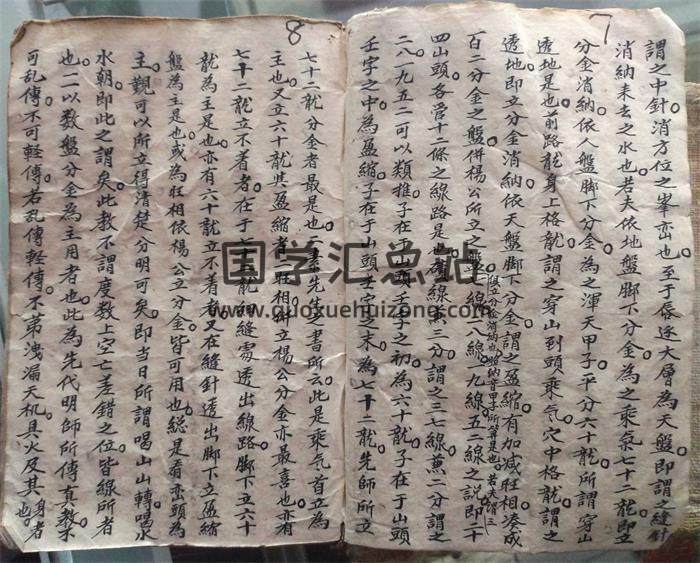 7
謂之中針消方位之峯巒也至于傍逐大層為天盤即謂之縫針
消納來去之水也若夫依地盤脚下分金為之乘氣七十二龍即立
分金消納依人盤脚下分金為之渾天甲子平分六十龍所謂穿山
透地是也前路龍身上格龍謂之穿山到頭乘气穴中格龍謂之
透地即立分金消納依天盤脚下分金謂之盈縮有加减旺相湊成
百二分金之盤併楊公所立之盤七線八線一九線五二線之説即二十
四山頭各受十二條之線路是也線兼三分謂之三七線兼二分謂之
二八一九五二可以類推子在于山頭壬子之初為六十龍子在于山頭
壬字之中為盈縮子在于山頭壬字之末為七十二龍先師所立
8
七十二龍分金者最是也先生書所云此是乘气首立為
主也又立六十龍其盈縮者旺相併立楊公分金亦最喜也亦有
七十二龍立不着者在于七十二龍細縫處透出線路脚下立六十
龍為主是也亦有六十龍立不着者又在縫針透出脚下立盈縮
盤為主是也或為旺相依楊公立分金皆可用也總是看巒頭為
主觀可以所立得清楚分明可矣即當日所謂喝山山轉喝水
水朝即此之謂矣此教不謂度数上空亡差錯之位皆線所者
也二以数盤分金為主用者也此為先代明師所傳真教不
可乱傳不可輕傳若乱傳輕傳不苐洩漏天机具火及其身者
也
www.guoxuehuizong.com
国学汇总站